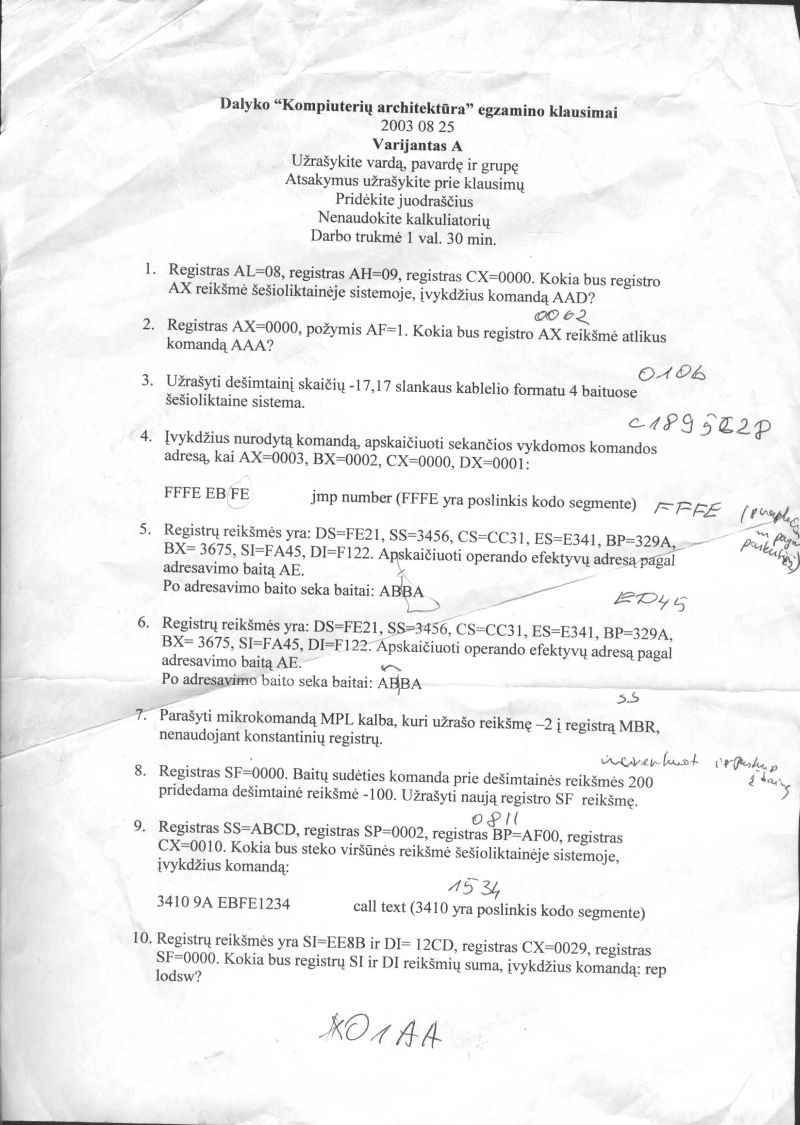 Dalyko “Kompiuterių architektūra” egzamino klausimai
2003 08 25
Varijantas A
Užrašykite vardą, pavardę ir grupę
Atsakymus užrašykite prie klausimų
Pridėkite juodraščius
Nenaudokite kalkuliatorių
Darbo trukmė 1 val. 30 min.
1. Registras AL=08, registras AH=09, registras CX=0000. Kokia bus registro
AX reikšmė šešioliktainėje sistemoje, įvykdžius komandą AAD?
0062
2. Registras AX=0000, požymis AF=1. Kokia bus registro AX reikšmė atlikus
komandą AAA?
0106
3. Užrašyti dešimtainį skaičių -17,17 slankaus kablelio formatu 4 baituose
šešioliktaine sistema.
C1895C28
4. Įvykdžius nurodytą komandą, apskaičiuoti sekančios vykdomos komandos
adresą, kai AX=0003, BX=0002, CX=0000, DX=0001:
FFFE EB FE jmp number (FFFE yra poslinkis kodo segmente) FFFE
5. Registrų reikšmės yra: DS=FE21, SS=3456, CS=CC31, ES=E341, BP=329A,
BX= 3675, SI=FA45, DI=F122. Apskaičiuoti operando efektyvų adresą pagal
adresavimo baitą AE.
Po adresavimo baito seka baitai: ABBA
ED45
6. Registrų reikšmės yra: DS=FE21, SS=3456, CS=CC31, ES=E341, BP=329A,
BX= 3675, SI=FA45, DI=F122. Apskaičiuoti operando efektyvų adresą pagal
adresavimo baitą AE.
Po adresavimo baito seka baitai: ABBA
SS
7. Parašyti mikrokomandą MPL kalba, kuri užrašo reikšmę –2 į registrą MBR,
nenaudojant konstantinių registrų.
8. Registras SF=0000. Baitų sudėties komanda prie dešimtainės reikšmės 200
pridedama dešimtainė reikšmė -100. Užrašyti naują registro SF reikšmę.
0811
9. Registras SS=ABCD, registras SP=0002, registras BP=AF00, registras
CX=0010. Kokia bus steko viršūnės reikšmė šešioliktainėje sistemoje,
įvykdžius komandą:
1534
3410 9A EBFE1234 call text (3410 yra poslinkis kodo segmente)
10. Registrų reikšmės yra SI=EE8B ir DI= 12CD, registras CX=0029, registras
SF=0000. Kokia bus registrų SI ir DI reikšmių suma, įvykdžius komandą: rep
lodsw?
01AA